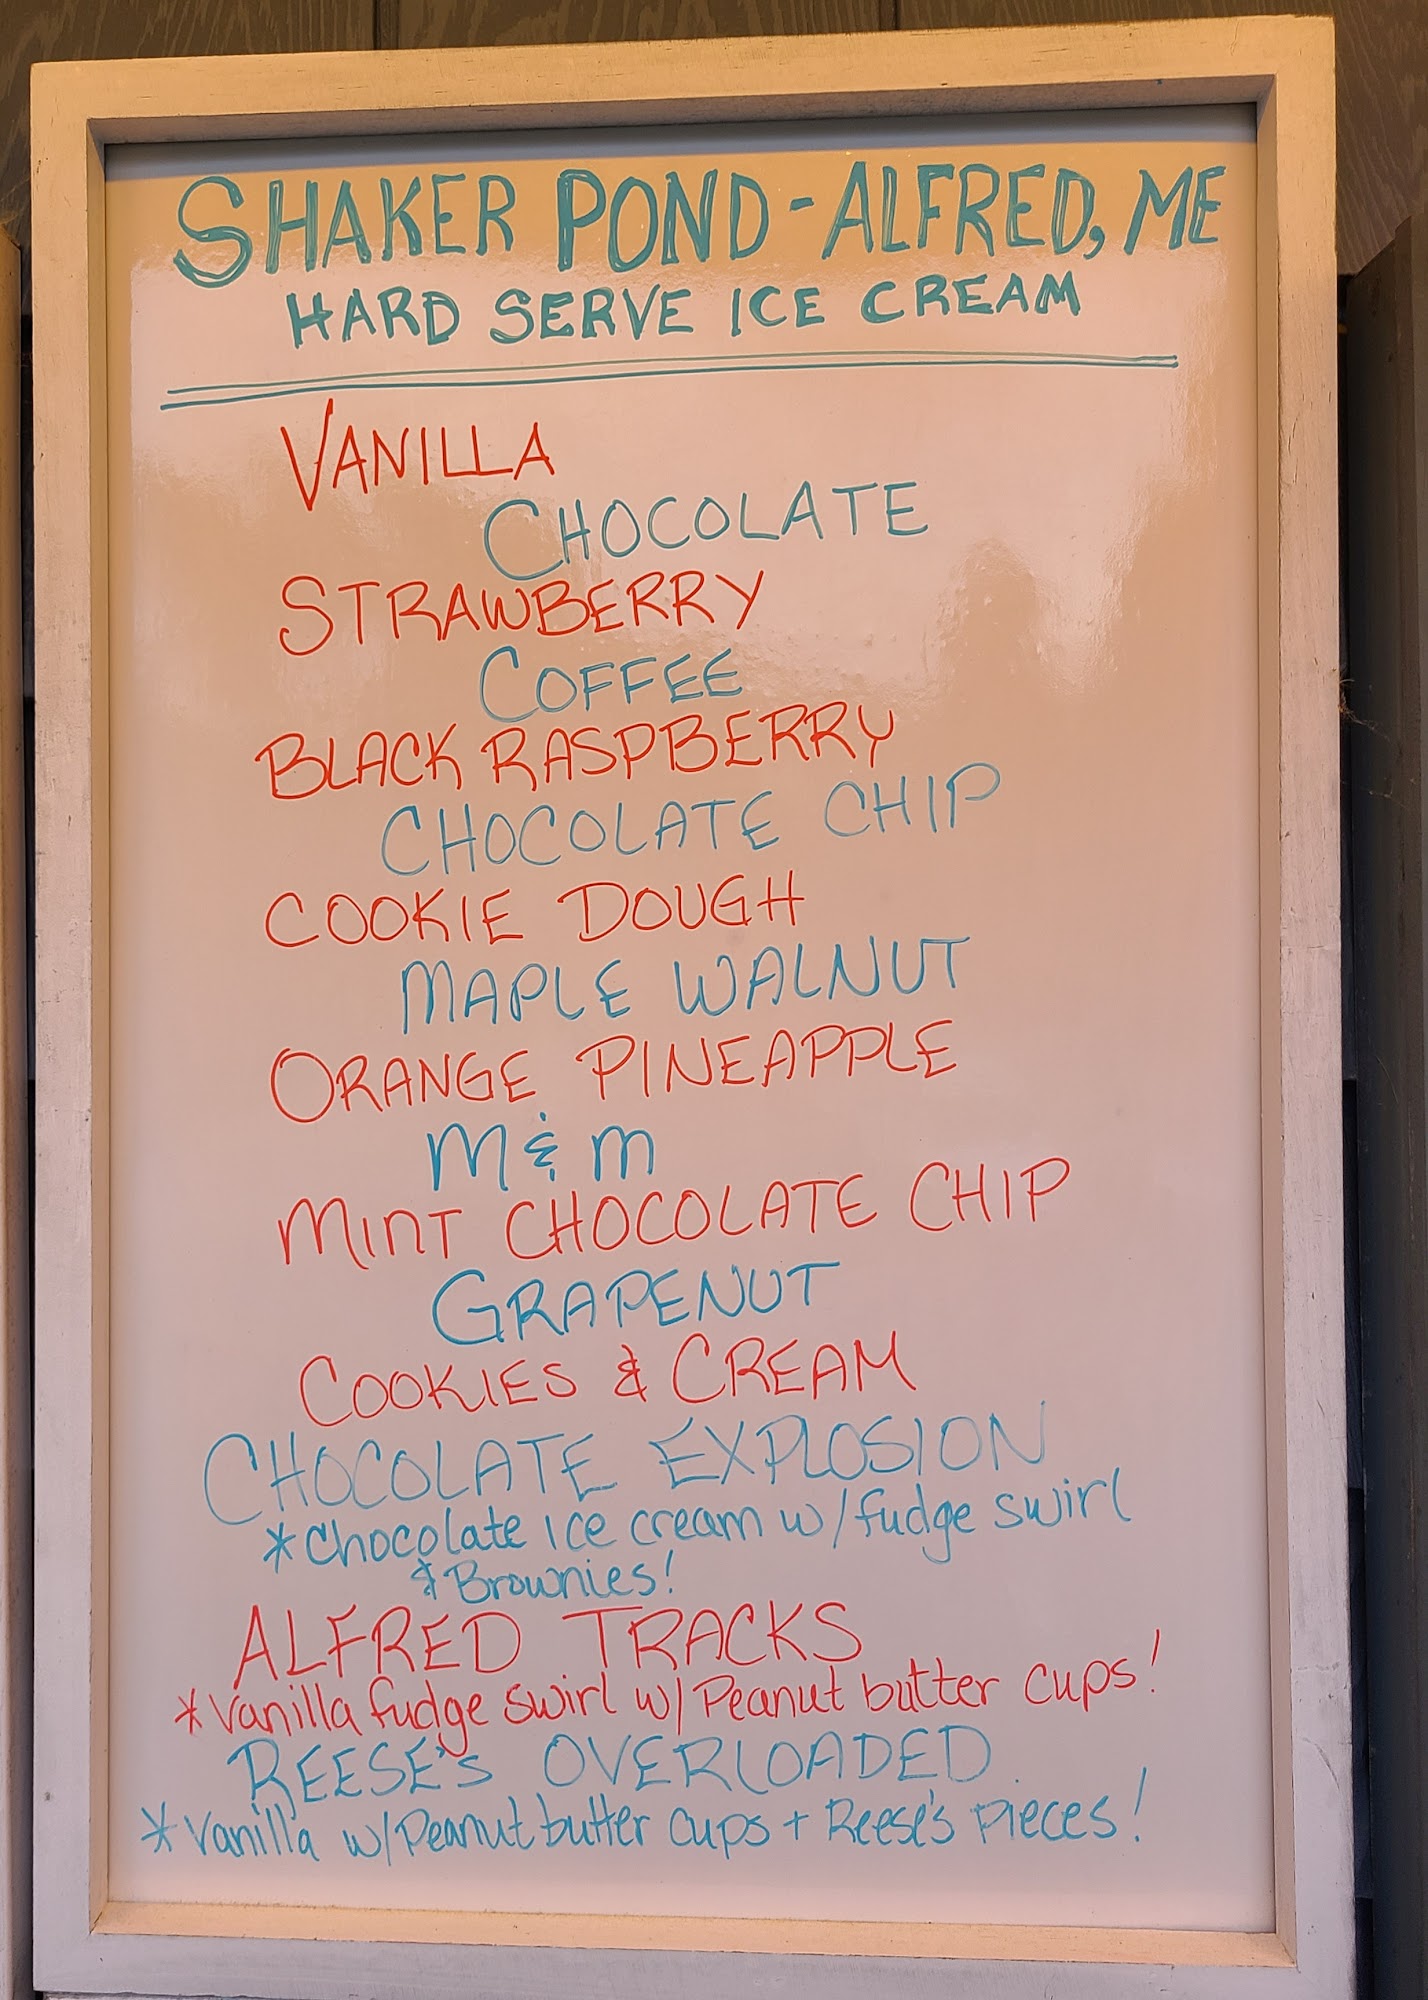 SHAKER POND - ALFRED, ME
HARD SERVE ICE CREAM
VANILLA
CHOCOLATE
STRAWBERRY
COFFEE
BLACK RASPBERRY
CHOCOLATE CHIP
COOKIE DOUGH
MAPLE WALNUT
ORANGE PINEAPPLE
M & M
MINT CHOCOLATE CHIP
GRAPENUT
COOKIES & CREAM
CHOCOLATE EXPLOSION
*Chocolate ice cream w/fudge swirl
& Brownies!
ALFRED TRACKS
*Vanilla fudge swirl w/ Peanut butter cups!
REESE'S OVERLOADED
*Vanilla w/Peanut butter cups + Reese's Pieces!